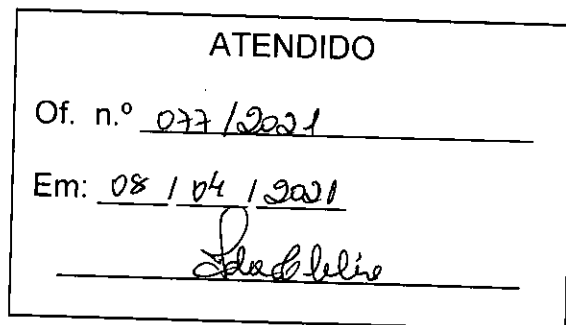 ATENDIDO
Of. n.º 077/2021
Em: 08 / 04 / 2021